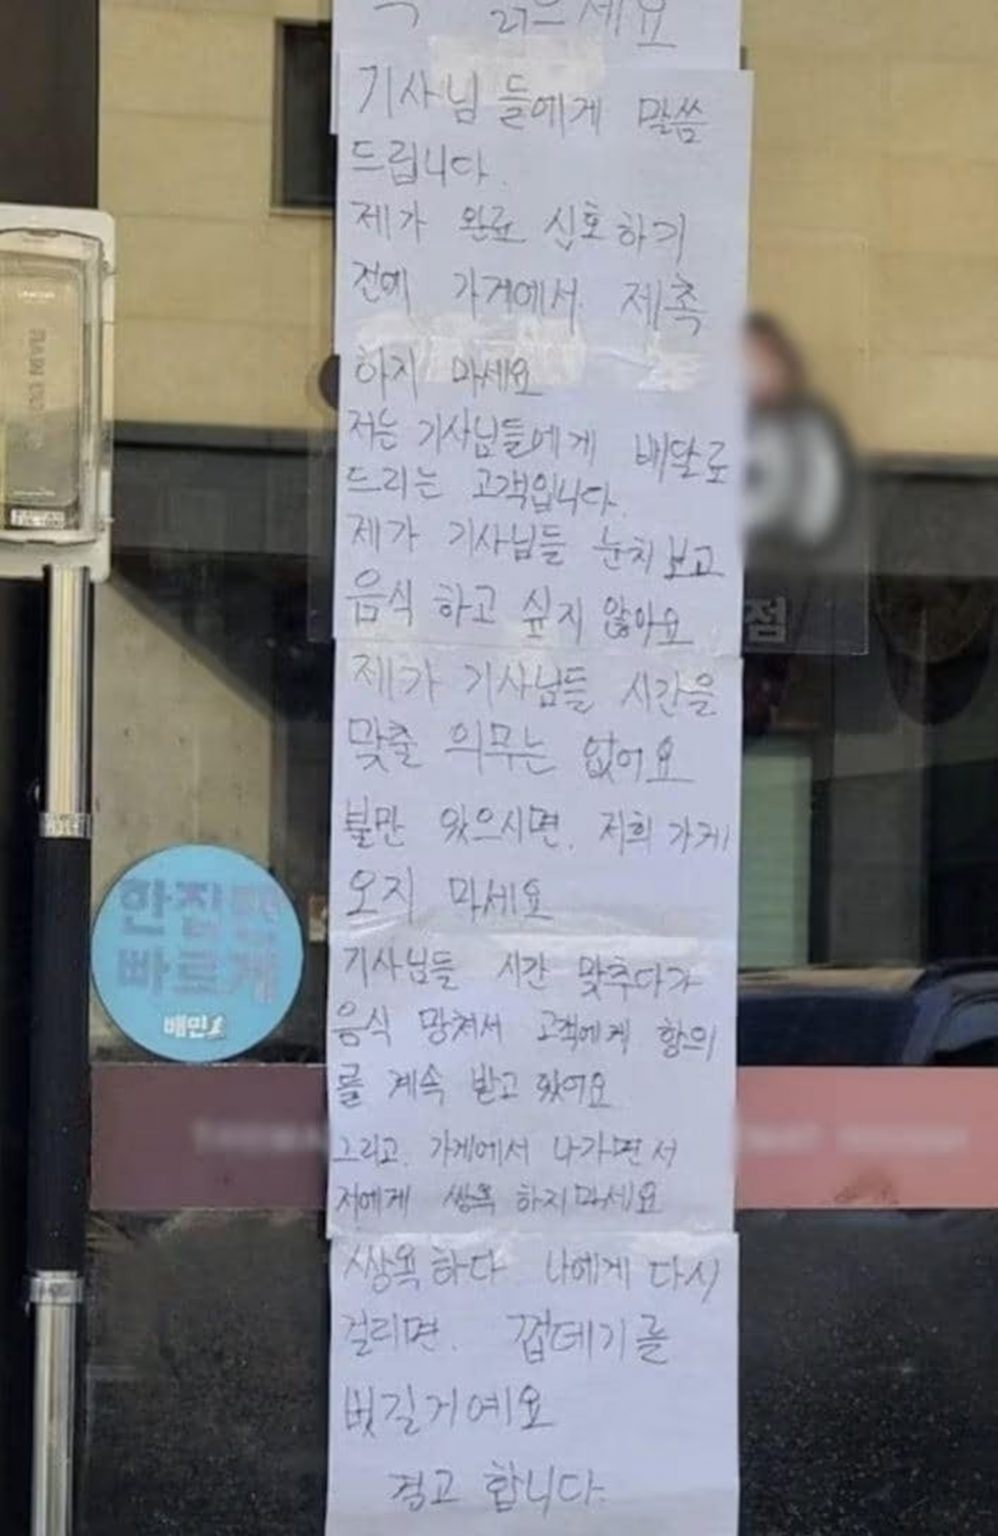 읽으세요
기사님들에게 말씀
드립니다.
제가 완료 신호하기
전에 가게에서 제촉
하지 마세요
저는 기사님들에게 배달료
드리는 고객입니다.
제가 기사님들 눈치 보고
음식 하고 싶지 않아요
제가 기사님들 시간을
맞출 의무는 없어요
불만 있으시면. 저희 가게
오지 마세요
기사님들 시간 맞추다가
음식 망쳐서 고객에게 항의
를 계속 받고 왔어요
그리고. 가게에서 나가면서
저에게 쌍욕 하지마세요
쌍욕하다 나에게 다시
걸리면. 껍데기를
벗길거예요
경고 합니다.
점
한집만
빠르게
배민1